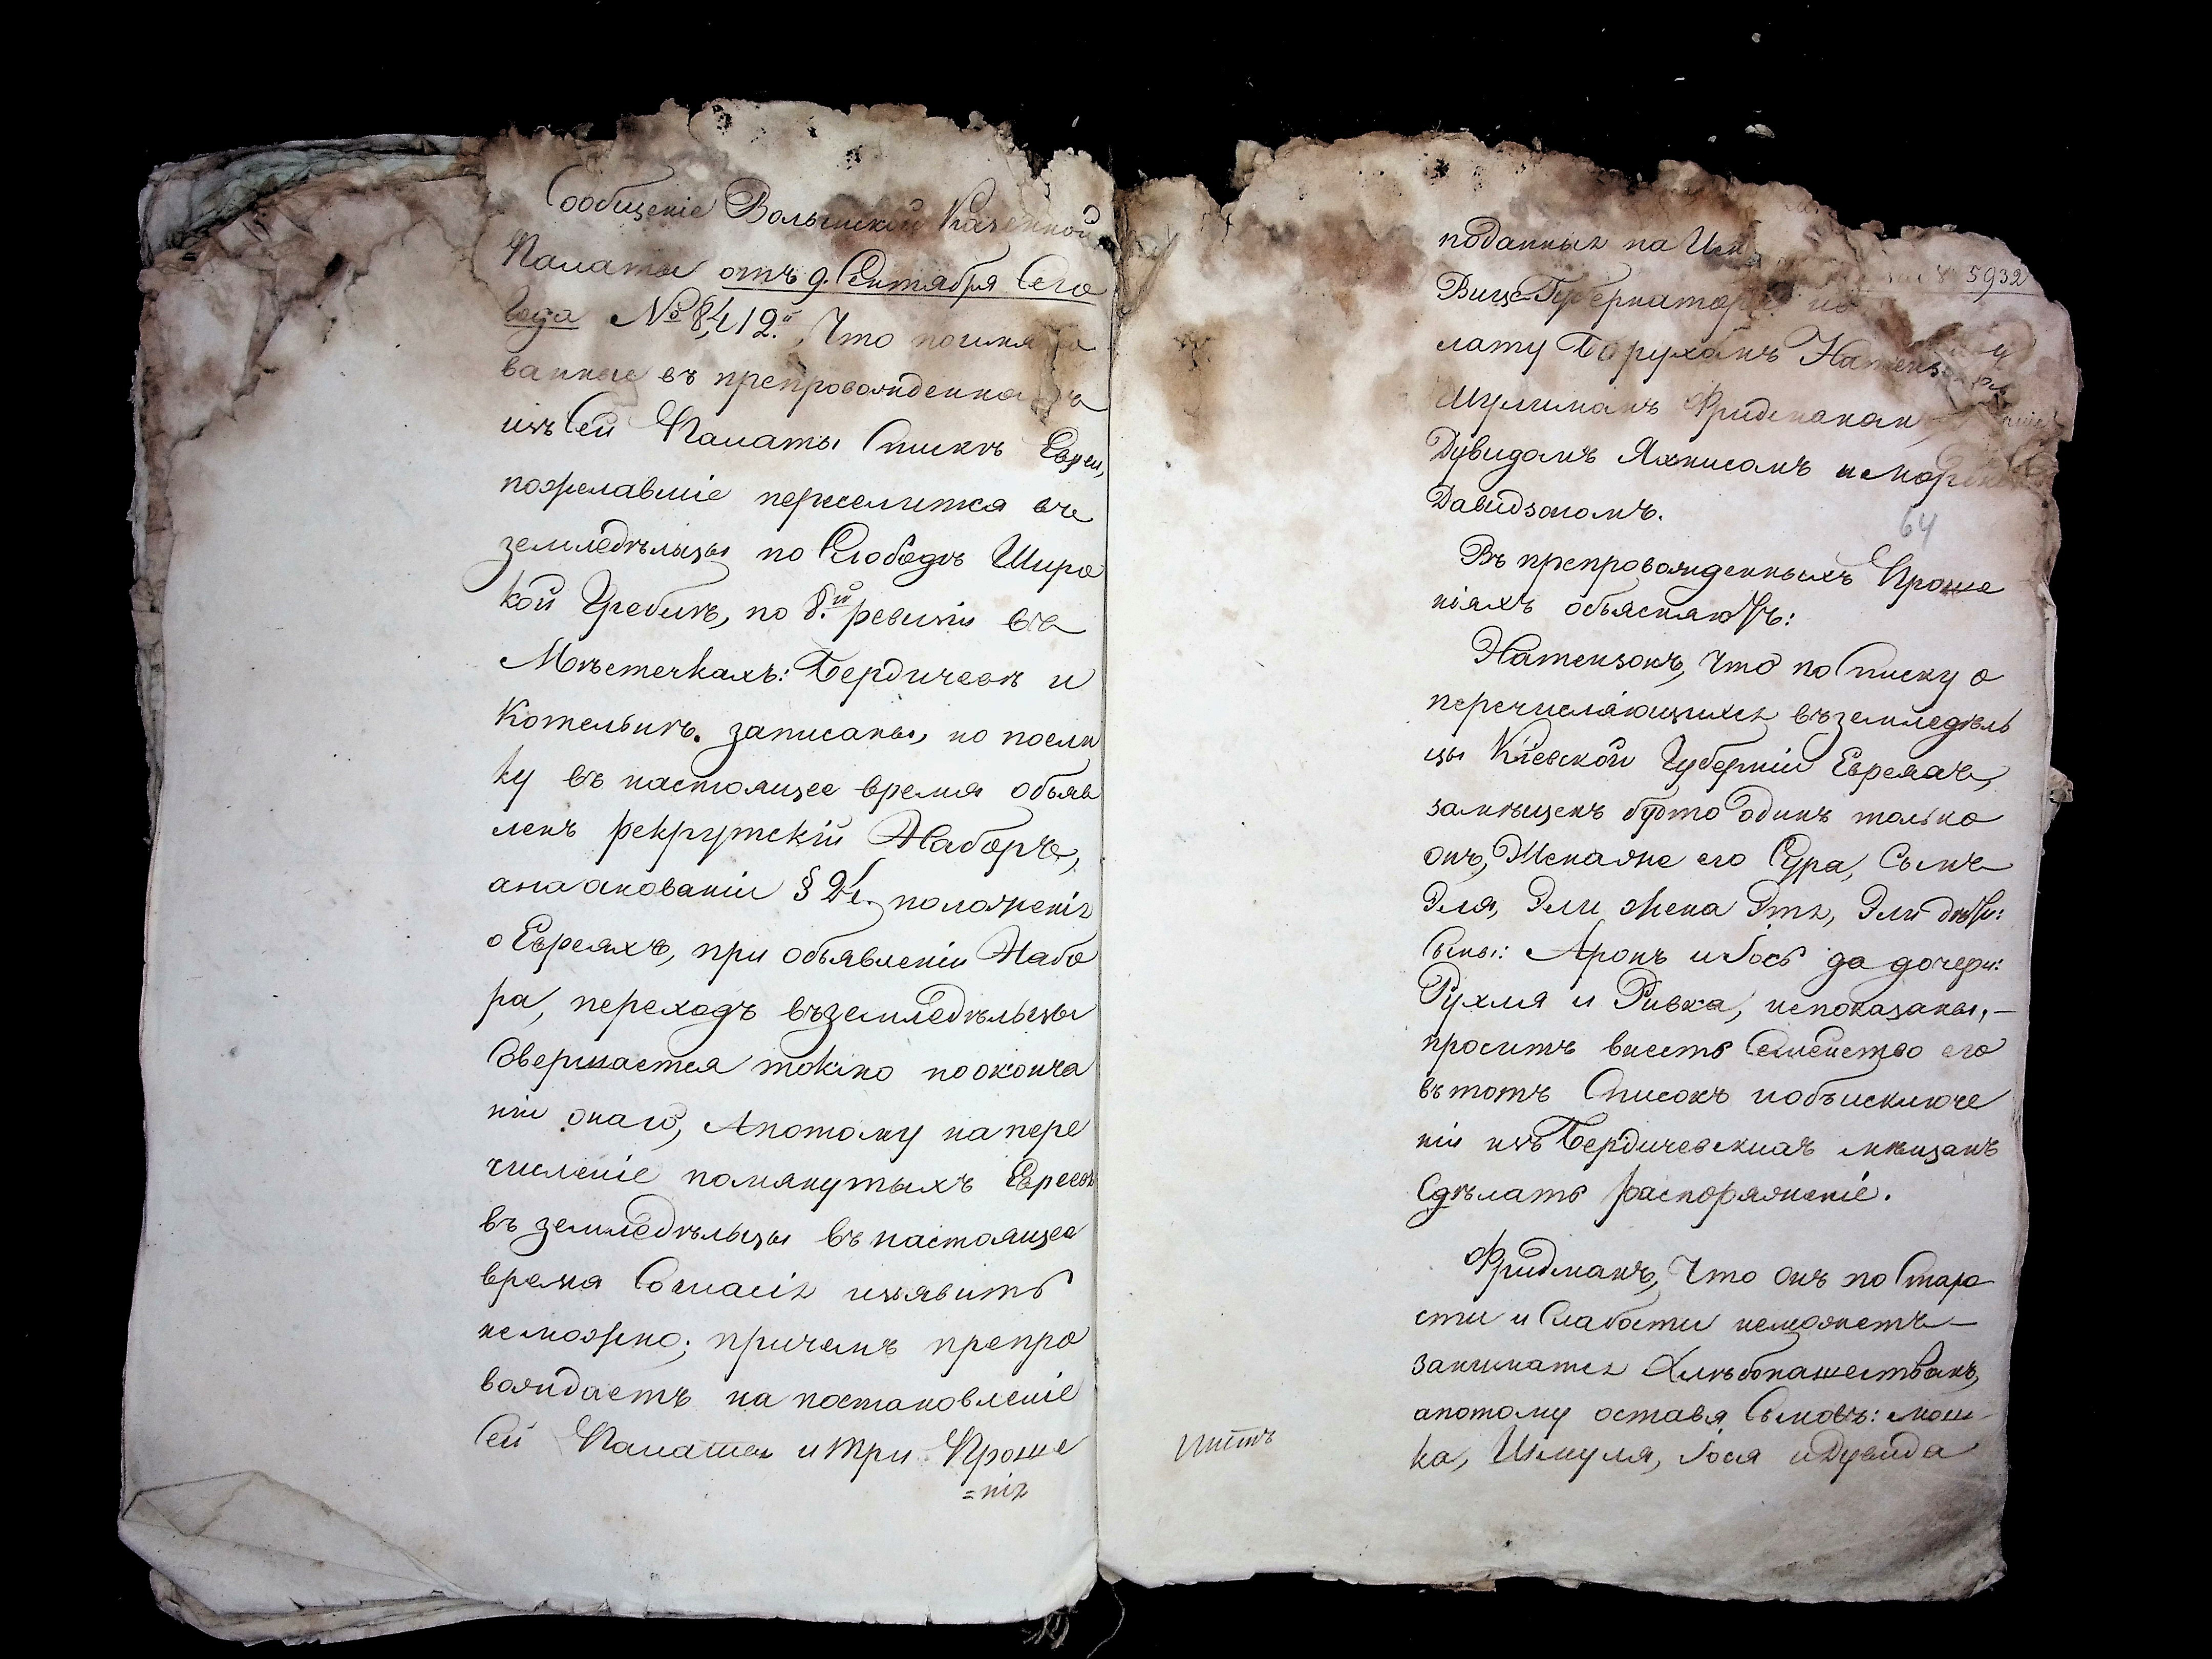 Сообщеніе Волынской Казенной
Палаты отъ 9. Сентября Сего
Года № 8,412.й, Что поимяно
ванные въ препровожденномъ
изъ Сей Палаты Спискѣ Евреи,
пожелавшіе переселится въ
земледѣльцы по Слободѣ Широ
кой Греблѣ, по 8.й ревизіи въ
Мѣстечкахъ: Бердичевѣ и
Котельнѣ. записаны, но поели
ку въ настоящее время объяв
ленъ рекрутскій Наборъ,
а на основаніи § 21. положенія
о Евреяхъ, при объявленіи Набо
ра, переходъ въ земледѣльцы
Совершается токмо по оконча
ніи онаго, А потому на пере
численіе помянутыхъ Евреевъ
въ земледѣльцы въ настоящее
время Согласія изъявить
неможно; причемъ препро
вождаетъ на постановленіе
Сей Палаты и три Проше
=нія
5932
поданныя на Имя
Вице=Губернатора
лату Борухомъ Натензономъ
Шулимомъ Фридманом
Дувидомъ Яхнисомъ и
Давидзономъ.
64
Въ препровожденныхъ Проше
ніяхъ объясняютъ:
Натензонъ, Что по Списку о
перечисляющихся въ земледѣль
цы Кіевской Губерніи Евреяхъ,
замѣщенъ будто одинъ только
онъ, Жена же его Сура, Сынъ
Эля, Эли жена Этя, Эли дѣти:
Сыны: Аронъ и Іось да дочери:
Рухля и Ривка, непоказаны, —
проситъ внесть Семейство его
въ тотъ Списокъ и объ исключе
ніи изъ Бердичевскихъ мѣщанъ
Сдѣлать распоряженіе.
Фридманъ, Что онъ по Старо
сти и Слабости неможетъ —
заниматся Хлѣбопашествомъ,
а потому оставя Сыновъ: Мош
ка, Шмуля, Іося и Дувида